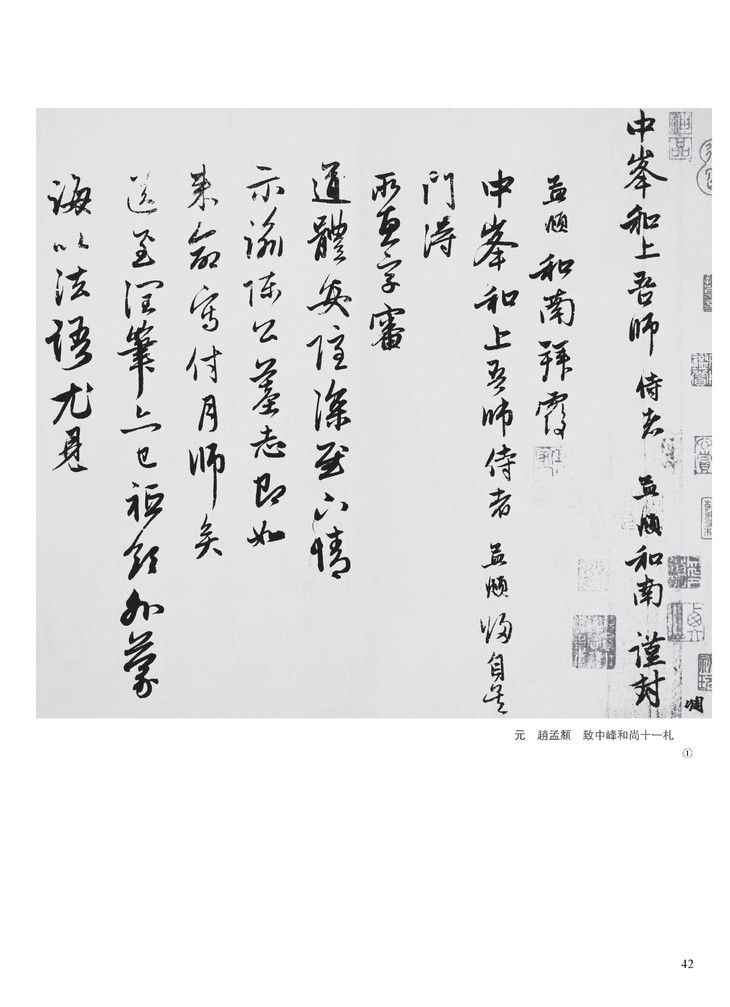 中峯和上吾師 侍者 孟頫和南 謹封
孟頫和南拜覆
中峯和上吾師侍者孟頫歸自吳
門得
所惠字審
道體安隱深慰下情
示諭陳公墓志即如
来命寫付月師矣
送至潤筆亦已祗領外蒙
誨以法語尤見
元 趙孟頫 致中峰和尚十一札
①
42